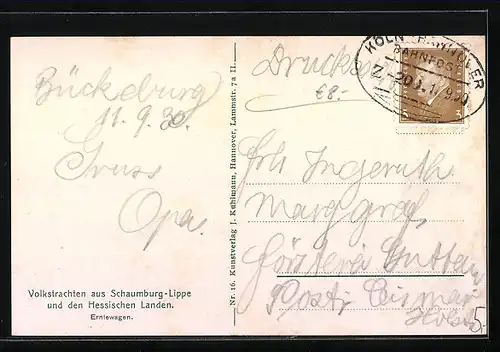 Bückeburg
11.9.30.
Gruss
Opa.
Volkstrachten aus Schaumburg-Lippe
und den Hessischen Landen.
Erntewagen.
Nr. 16. Kunstverlag J. Kuhlmann, Hannover, Lammstr. 7a II.
Drucks
€8.-
KÖLN HANNOVER
BAHNPOST
3
Frl. Ingeruth
Marggraf,
Försterei
Post: Cismar
Holst.
5